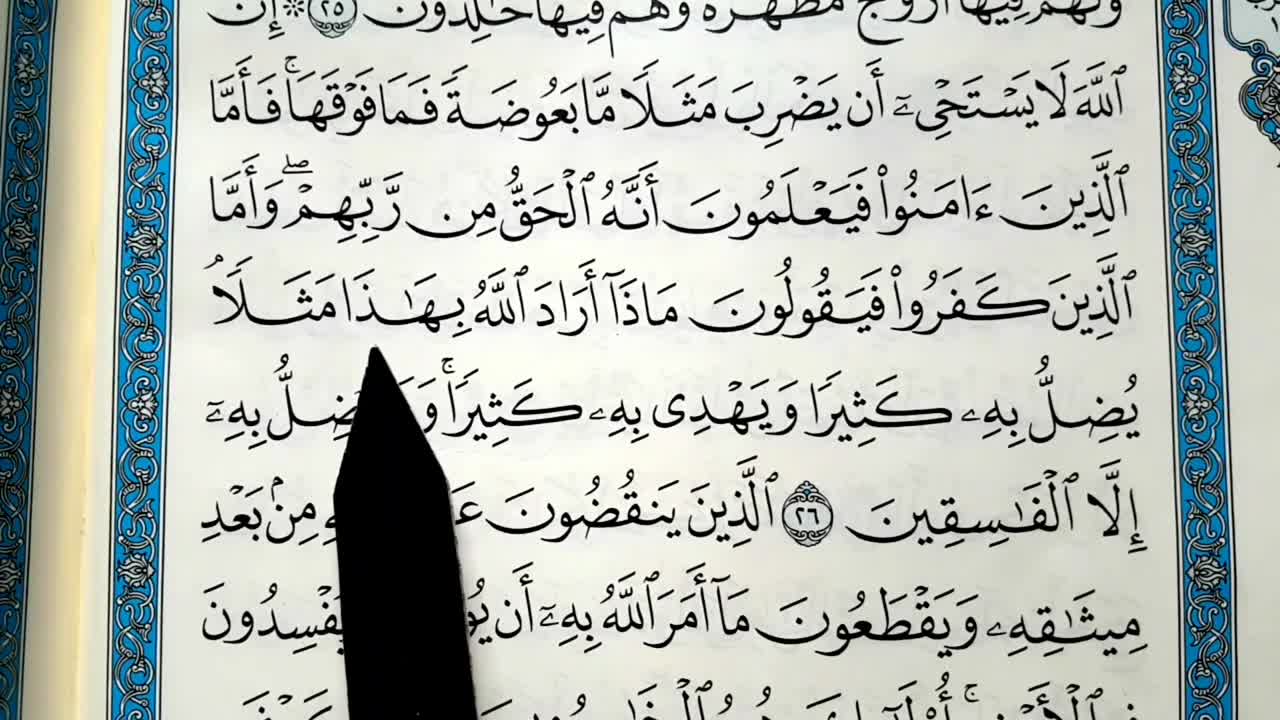 وَلَهُمْ فِيهَا أَزْوَٰجٌ مُّطَهَّرَةٌ وَهُمْ فِيهَا خَٰلِدُونَ ٢٥ ۞ إِنَّ
ٱللَّهَ لَا يَسْتَحْىِۦٓ أَن يَضْرِبَ مَثَلًا مَّا بَعُوضَةً فَمَا فَوْقَهَا ۚ فَأَمَّا
ٱلَّذِينَ ءَامَنُوا۟ فَيَعْلَمُونَ أَنَّهُ ٱلْحَقُّ مِن رَّبِّهِمْ ۖ وَأَمَّا
ٱلَّذِينَ كَفَرُوا۟ فَيَقُولُونَ مَاذَآ أَرَادَ ٱللَّهُ بِهَٰذَا مَثَلًا ۘ
يُضِلُّ بِهِۦ كَثِيرًا وَيَهْدِى بِهِۦ كَثِيرًا ۚ بِهِۦٓ
إِلَّا ٱلْفَٰسِقِينَ ٢٦ ٱلَّذِينَ يَنقُضُونَ مِنۢ بَعْدِ
مِيثَٰقِهِۦ وَيَقْطَعُونَ مَآ أَمَرَ ٱللَّهُ بِهِۦٓ أَن